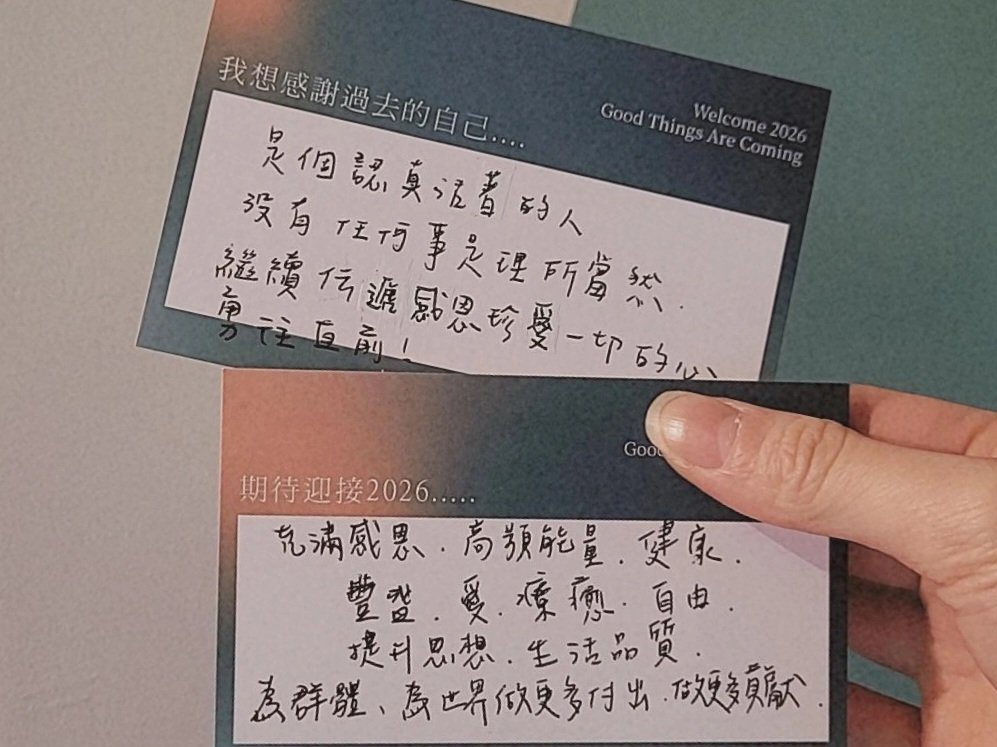 我想感謝過去的自己....
Welcome 2026
Good Things Are Coming
是個認真活著的人
沒有任何事是理所當然.
繼續伝遞感恩珍愛一切的心
勇往直前!
Good
期待迎接2026.....
充滿感恩.高頻能量.健康.
豐盈.愛.療癒.自由.
提升思想.生活品質.
為群體、為世界做更多付出.做更多貢獻.